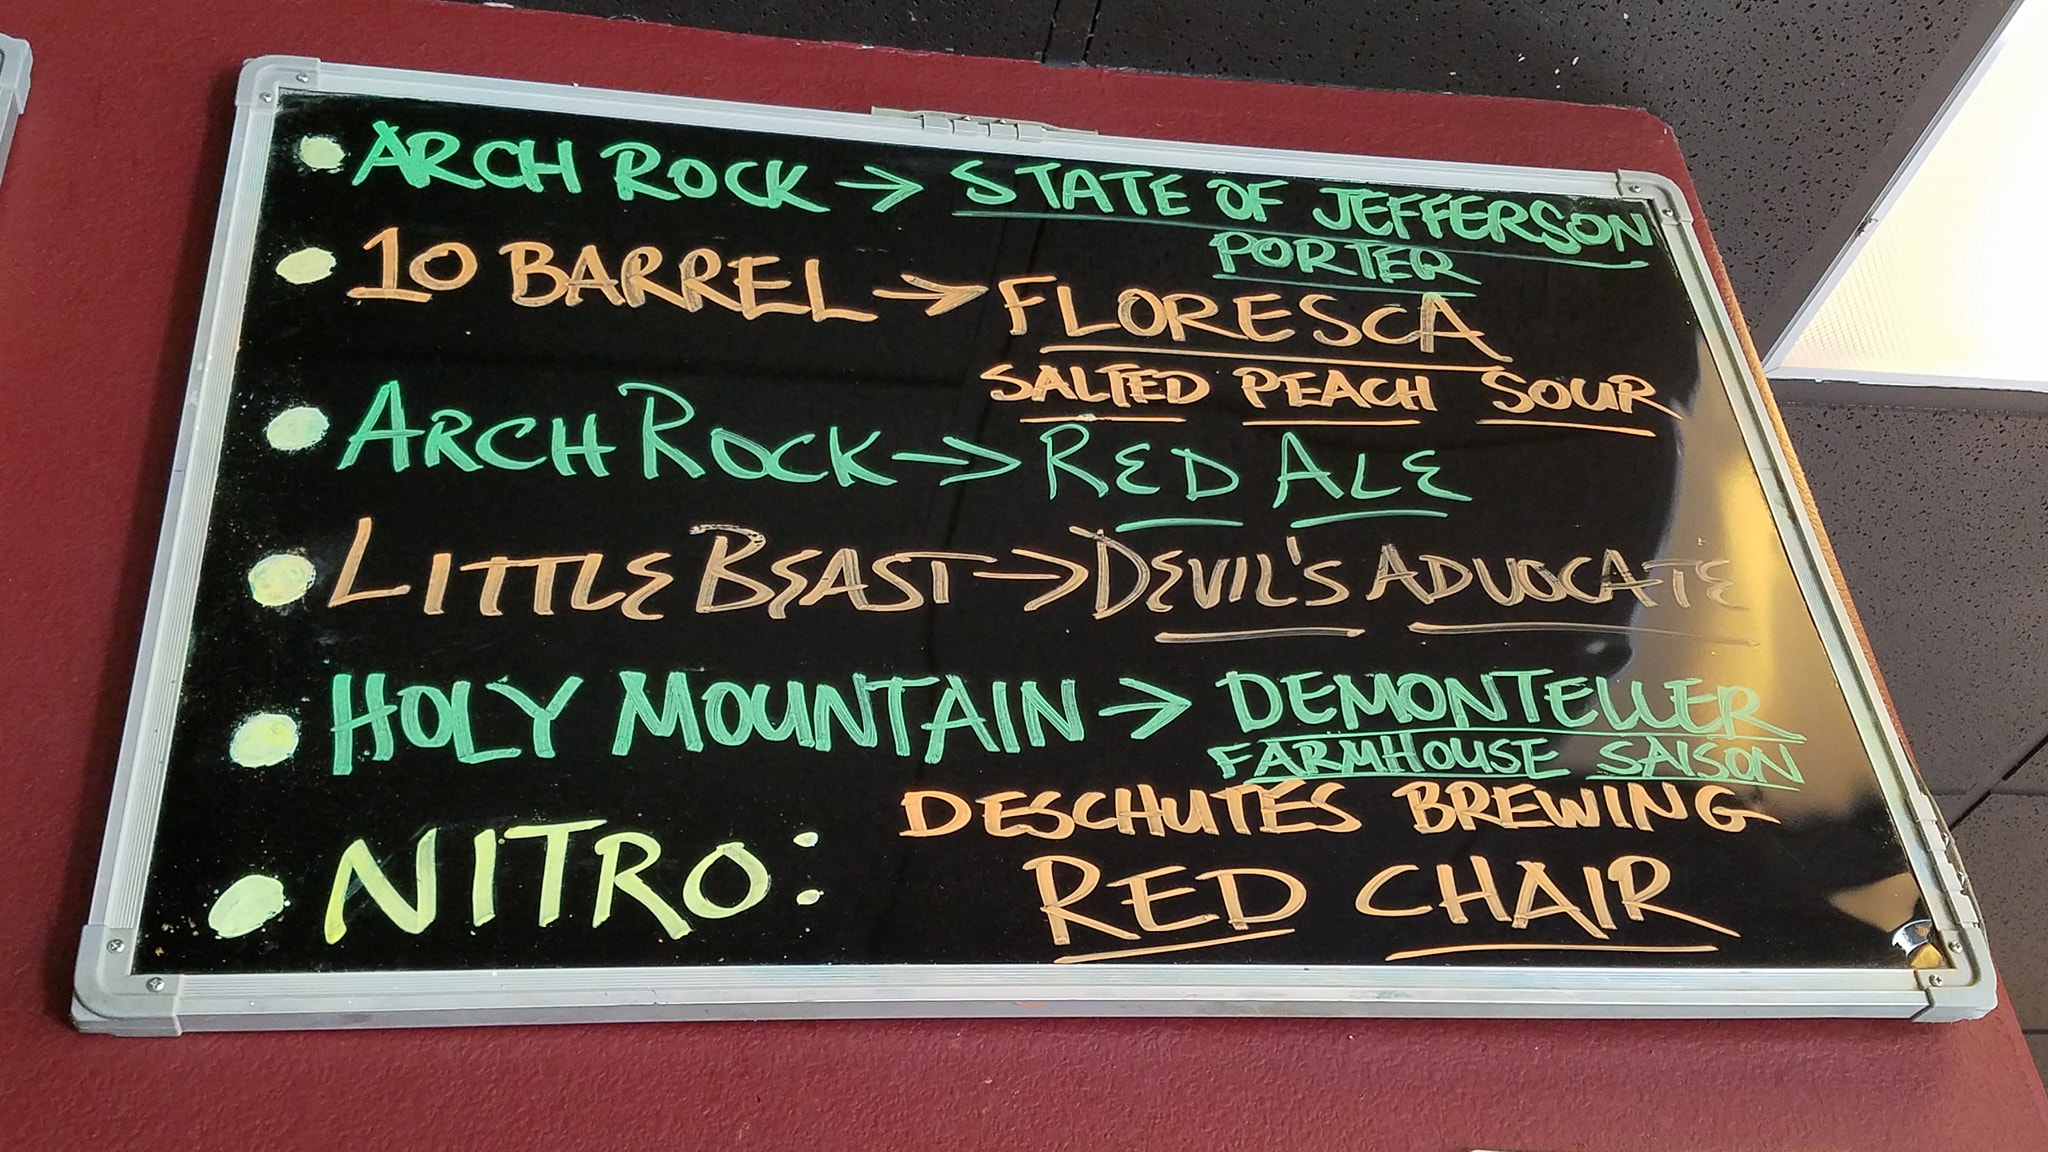 ARCH ROCK → STATE OF JEFFERSON
PORTER
10 BARREL → FLORESCA
SALTED PEACH SOUR
ARCH ROCK → RED ALE
LITTLE BEAST → DEVIL'S ADVOCATE
HOLY MOUNTAIN → DEMONTELLER
FARMHOUSE SAISON
NITRO: DESCHUTES BREWING
RED CHAIR